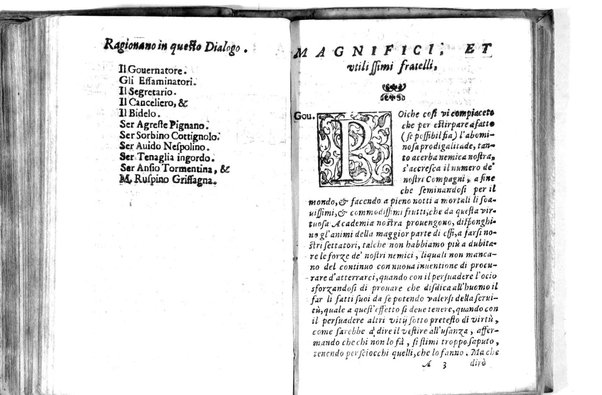 Ragionano in questo Dialogo.
Il Gouernatore.
Gli Essaminatori.
Il Segretario.
Il Canceliero, &
Il Bidelo.
Ser Agreste Pignano.
Ser Sorbino Cottignolo.
Ser Auido Nespolino.
Ser Tenaglia ingordo.
Ser Ansio Tormentina, &
M. Ruspino Griffagna.
MAGNIFICI, ET
vtilissimi fratelli,
Gou. POiche cosi vi compiacete
che per estirpare affatto
(se possibil fia) l'abomi
nosa prodigalitade, tan-
to acerba nemica nostra,
s'accresca il numero de'
nostri Compagni, a fine
che seminandosi per il
mondo, & facendo a pieno notti a mortali li soa-
uissimi, & commodissimi frutti, che da questa vir-
tuosa Academia nostra prouengono, disponghi-
no gl'animi della maggior parte di essi, a farsi no-
stri settatori, talche non habbiamo più a dubita-
re le forze de' nostri nemici, liquali non manca-
no del continuo con nuoua inuentione di procu-
rare d'atterrarci, quando con il persuadere l'ocio
sforzandosi di prouare che disdica all'huomo il
far li fatti suoi da se potendo valersi della serui-
tù, quale a quest'effetto si deue tenere, quando con
il persuadere altri vitij sotto pretesto di virtù,
come sarebbe a dire il vestire all'usanza, affer-
mando che chi non lo fà, si stimi troppo saputo,
tenendo per sciocchi quelli, che lo fanno. Ma che
A 3 dirò